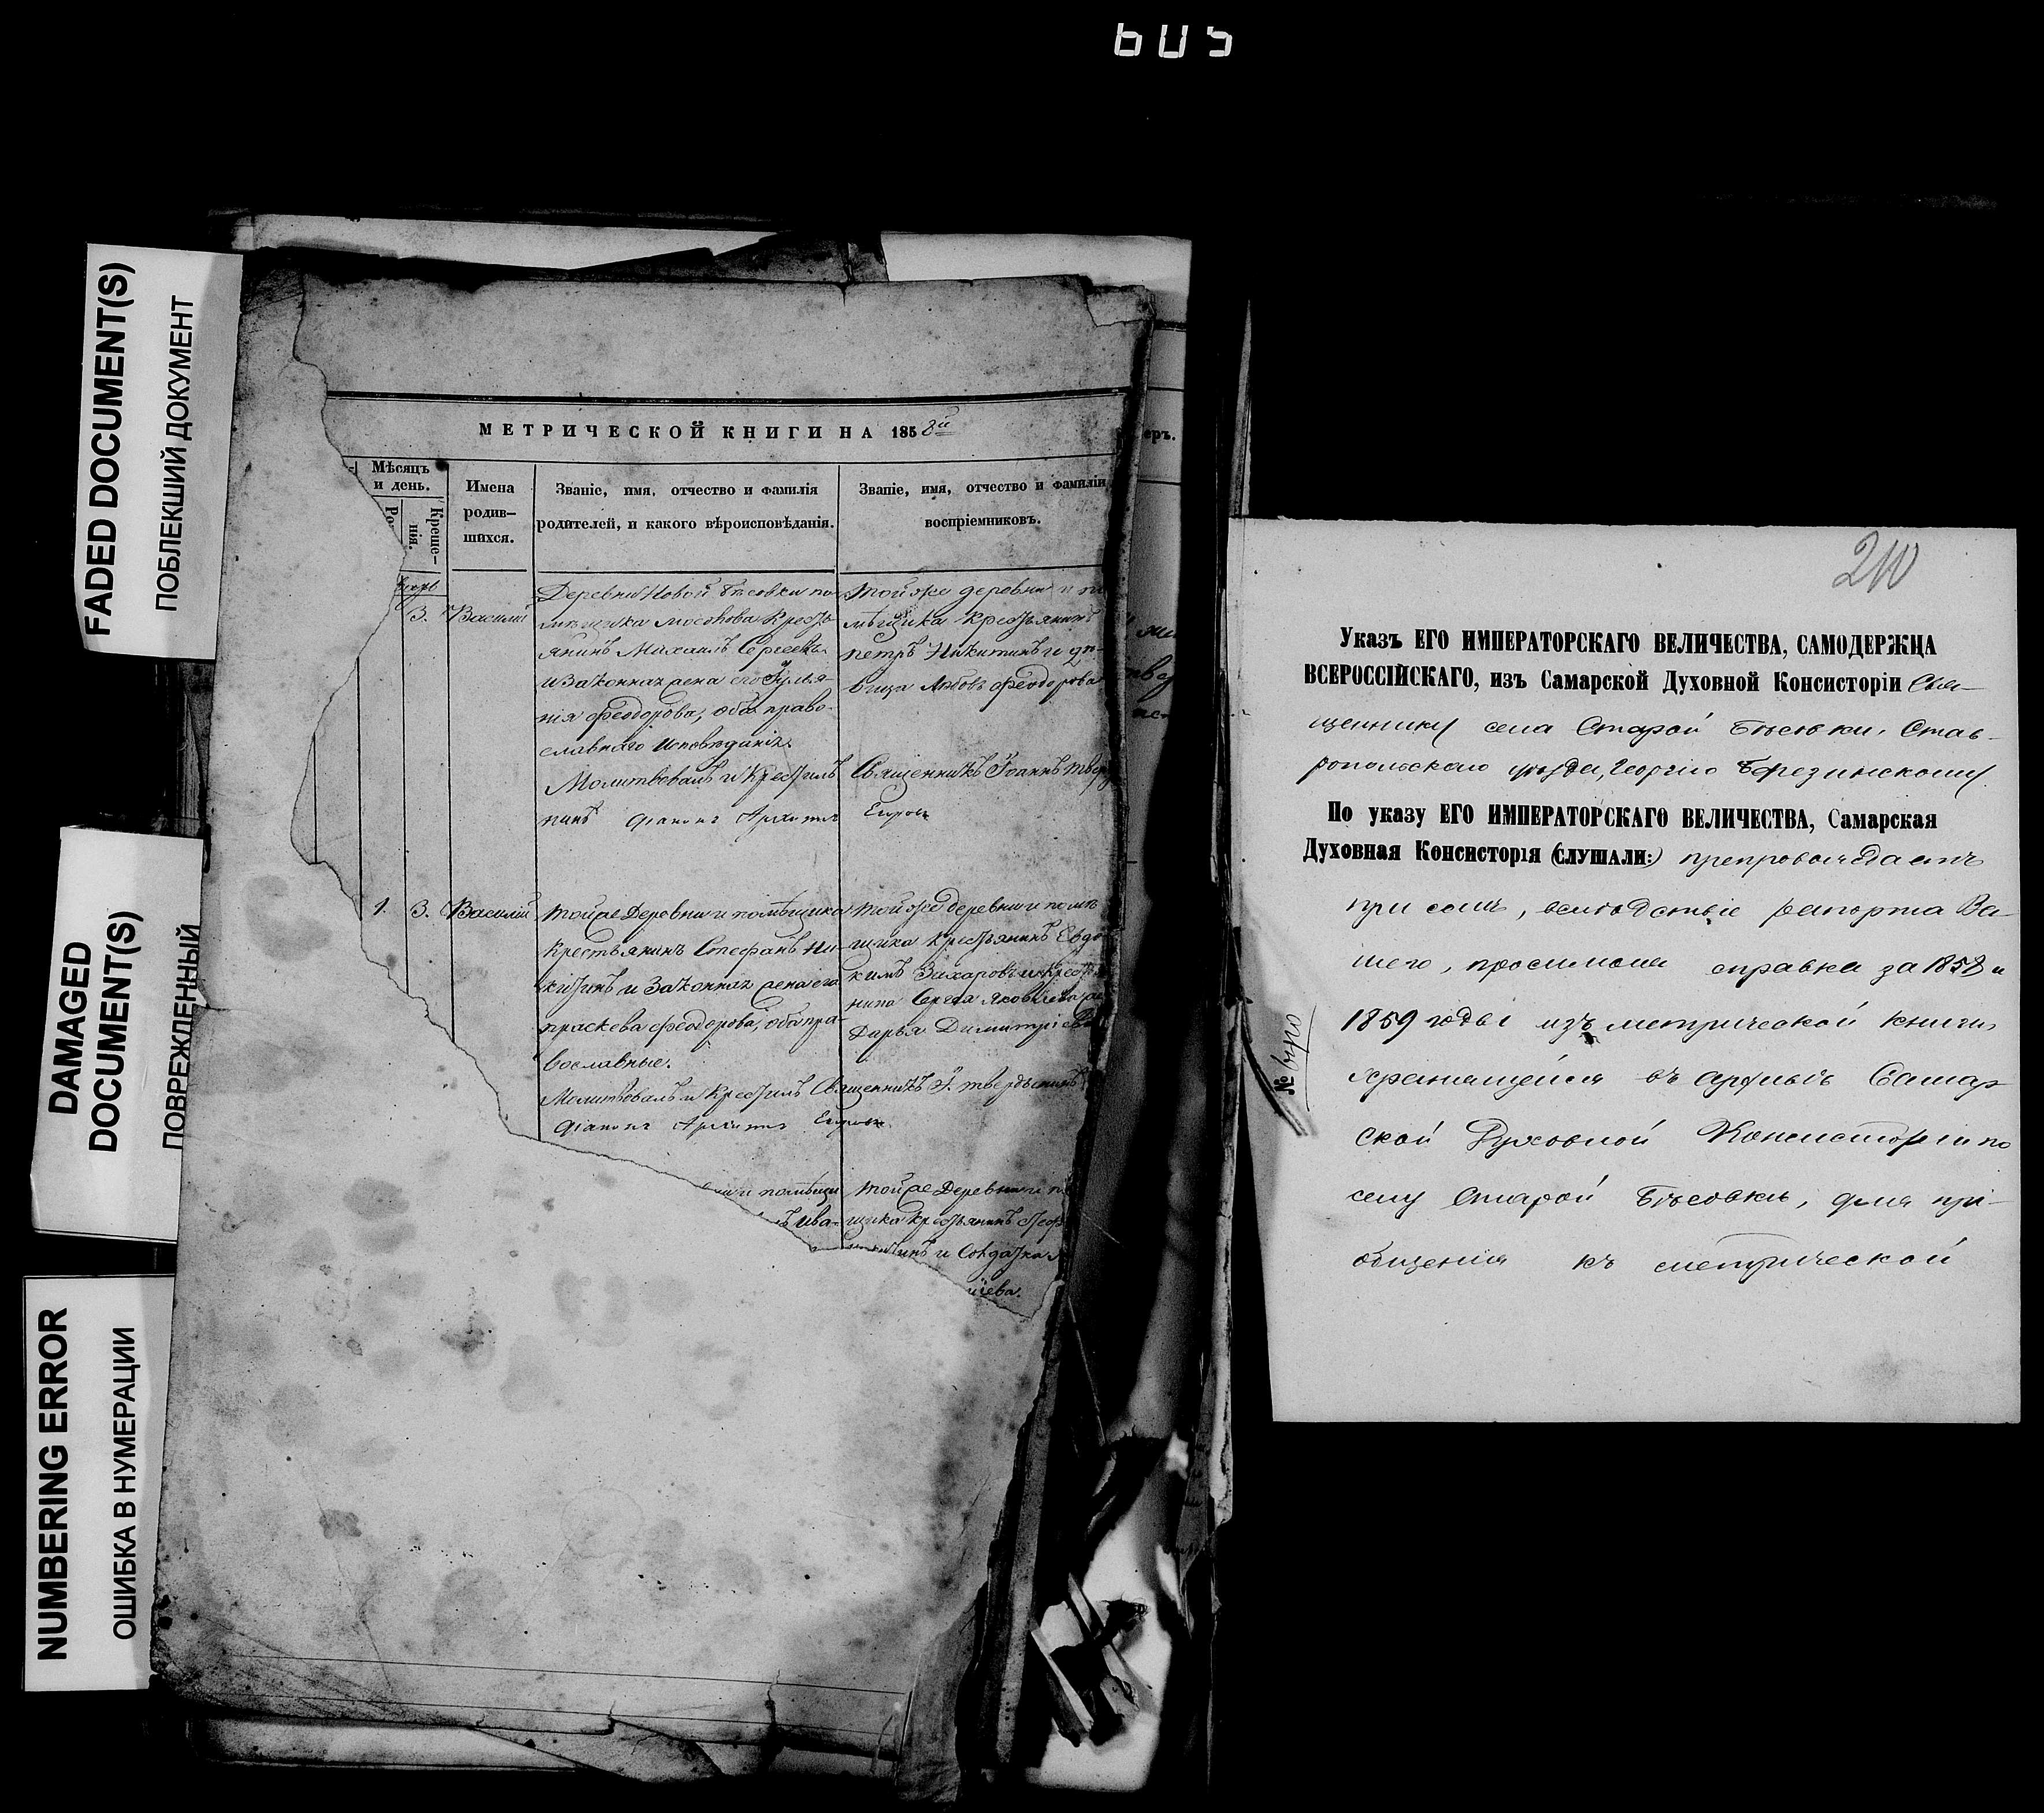 605
FADED DOCUMENT(S)
ПОБЛЕКШИЙ ДОКУМЕНТ
DAMAGED
DOCUMENT(S)
ПОВРЕЖДЕННЫЙ
NUMBERING ERROR
ОШИБКА В НУМЕРАЦИИ
МЕТРИЧЕСКОЙ КНИГИ НА 1858й
Мѣсяцъ
и день.
Ро
Креще-
нія.
Имена
родив-
шихся.
Званіе, имя, отчество и фамилія
родителей, и какого вѣроисповѣданія.
Званіе, имя, отчество и фамилія
воспріемниковъ.
3. Василій
Деревни Новой Бѣсовки по-
мѣщика Мосолова Кресть-
янинъ Михаилъ Сергеевъ
и законная жена его Іулья-
нія Феодорова, оба право-
славнаго исповѣданія.
Молитвовалъ и крестилъ Священникъ Іоаннъ Тверды-
нинъ Діаконъ Архипъ Егоровъ
той же деревни и по
мѣщика крестьянинъ
Петръ Никитинъ и дѣ-
вица Любовь Феодорова
1. 3. Василій
той же Деревни и помѣщика
Крестьянинъ Стефанъ Ни-
китинъ и законная жена его
Праскева Феодорова, оба пра-
вославные.
Молитвовалъ и крестилъ Священникъ І. Твердынинъ
Діаконъ Архипъ Егоровъ
той же деревни и помѣ
щика крестьянинъ Евдо
кимъ Захаровъ и крестья
нина Сергея Яковлева
Дарья Димитріева
и помѣщи
Ива-
той же Деревни и по
щика крестьянинъ
и Солдатка
ева.
еръ.
210
Указъ ЕГО ИМПЕРАТОРСКАГО ВЕЛИЧЕСТВА, САМОДЕРЖЦА
ВСЕРОССІЙСКАГО, изъ Самарской Духовной Консисторіи Свя-
щеннику села Старой Бѣсовки, Став-
ропольскаго уѣзда, Георгію Березинскому.
По указу ЕГО ИМПЕРАТОРСКАГО ВЕЛИЧЕСТВА, Самарская
Духовная Консисторія (СЛУШАЛИ:) препровождаетъ
при семъ, вслѣдствіе рапорта Ва-
шего, просимыя справки за 1858 и
1859 годы изъ метрической книги,
хранящейся въ архивѣ Самар-
ской Духовной Консисторіи по
селу Старой Бѣсовкѣ, для прі-
общенія къ метрической
№